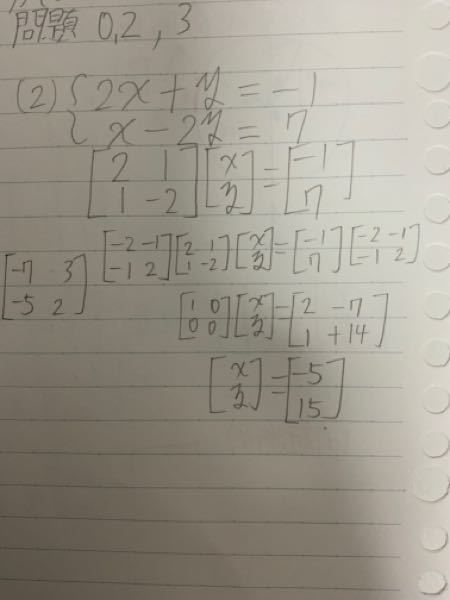 問題 0,2, 3
(2) { 2x + y = -1
{ x - 2y = 7
[2 1; 1 -2] [x; y] = [-1; 7]
[-7 3; -5 2] [-2 -1; -1 2] [2 1; 1 -2] [x; y] = [-1; 7] [-2 -1; -1 2]
[1 0; 0 0] [x; y] = [2 -7; 1 +14]
[x; y] = [-5; 15]